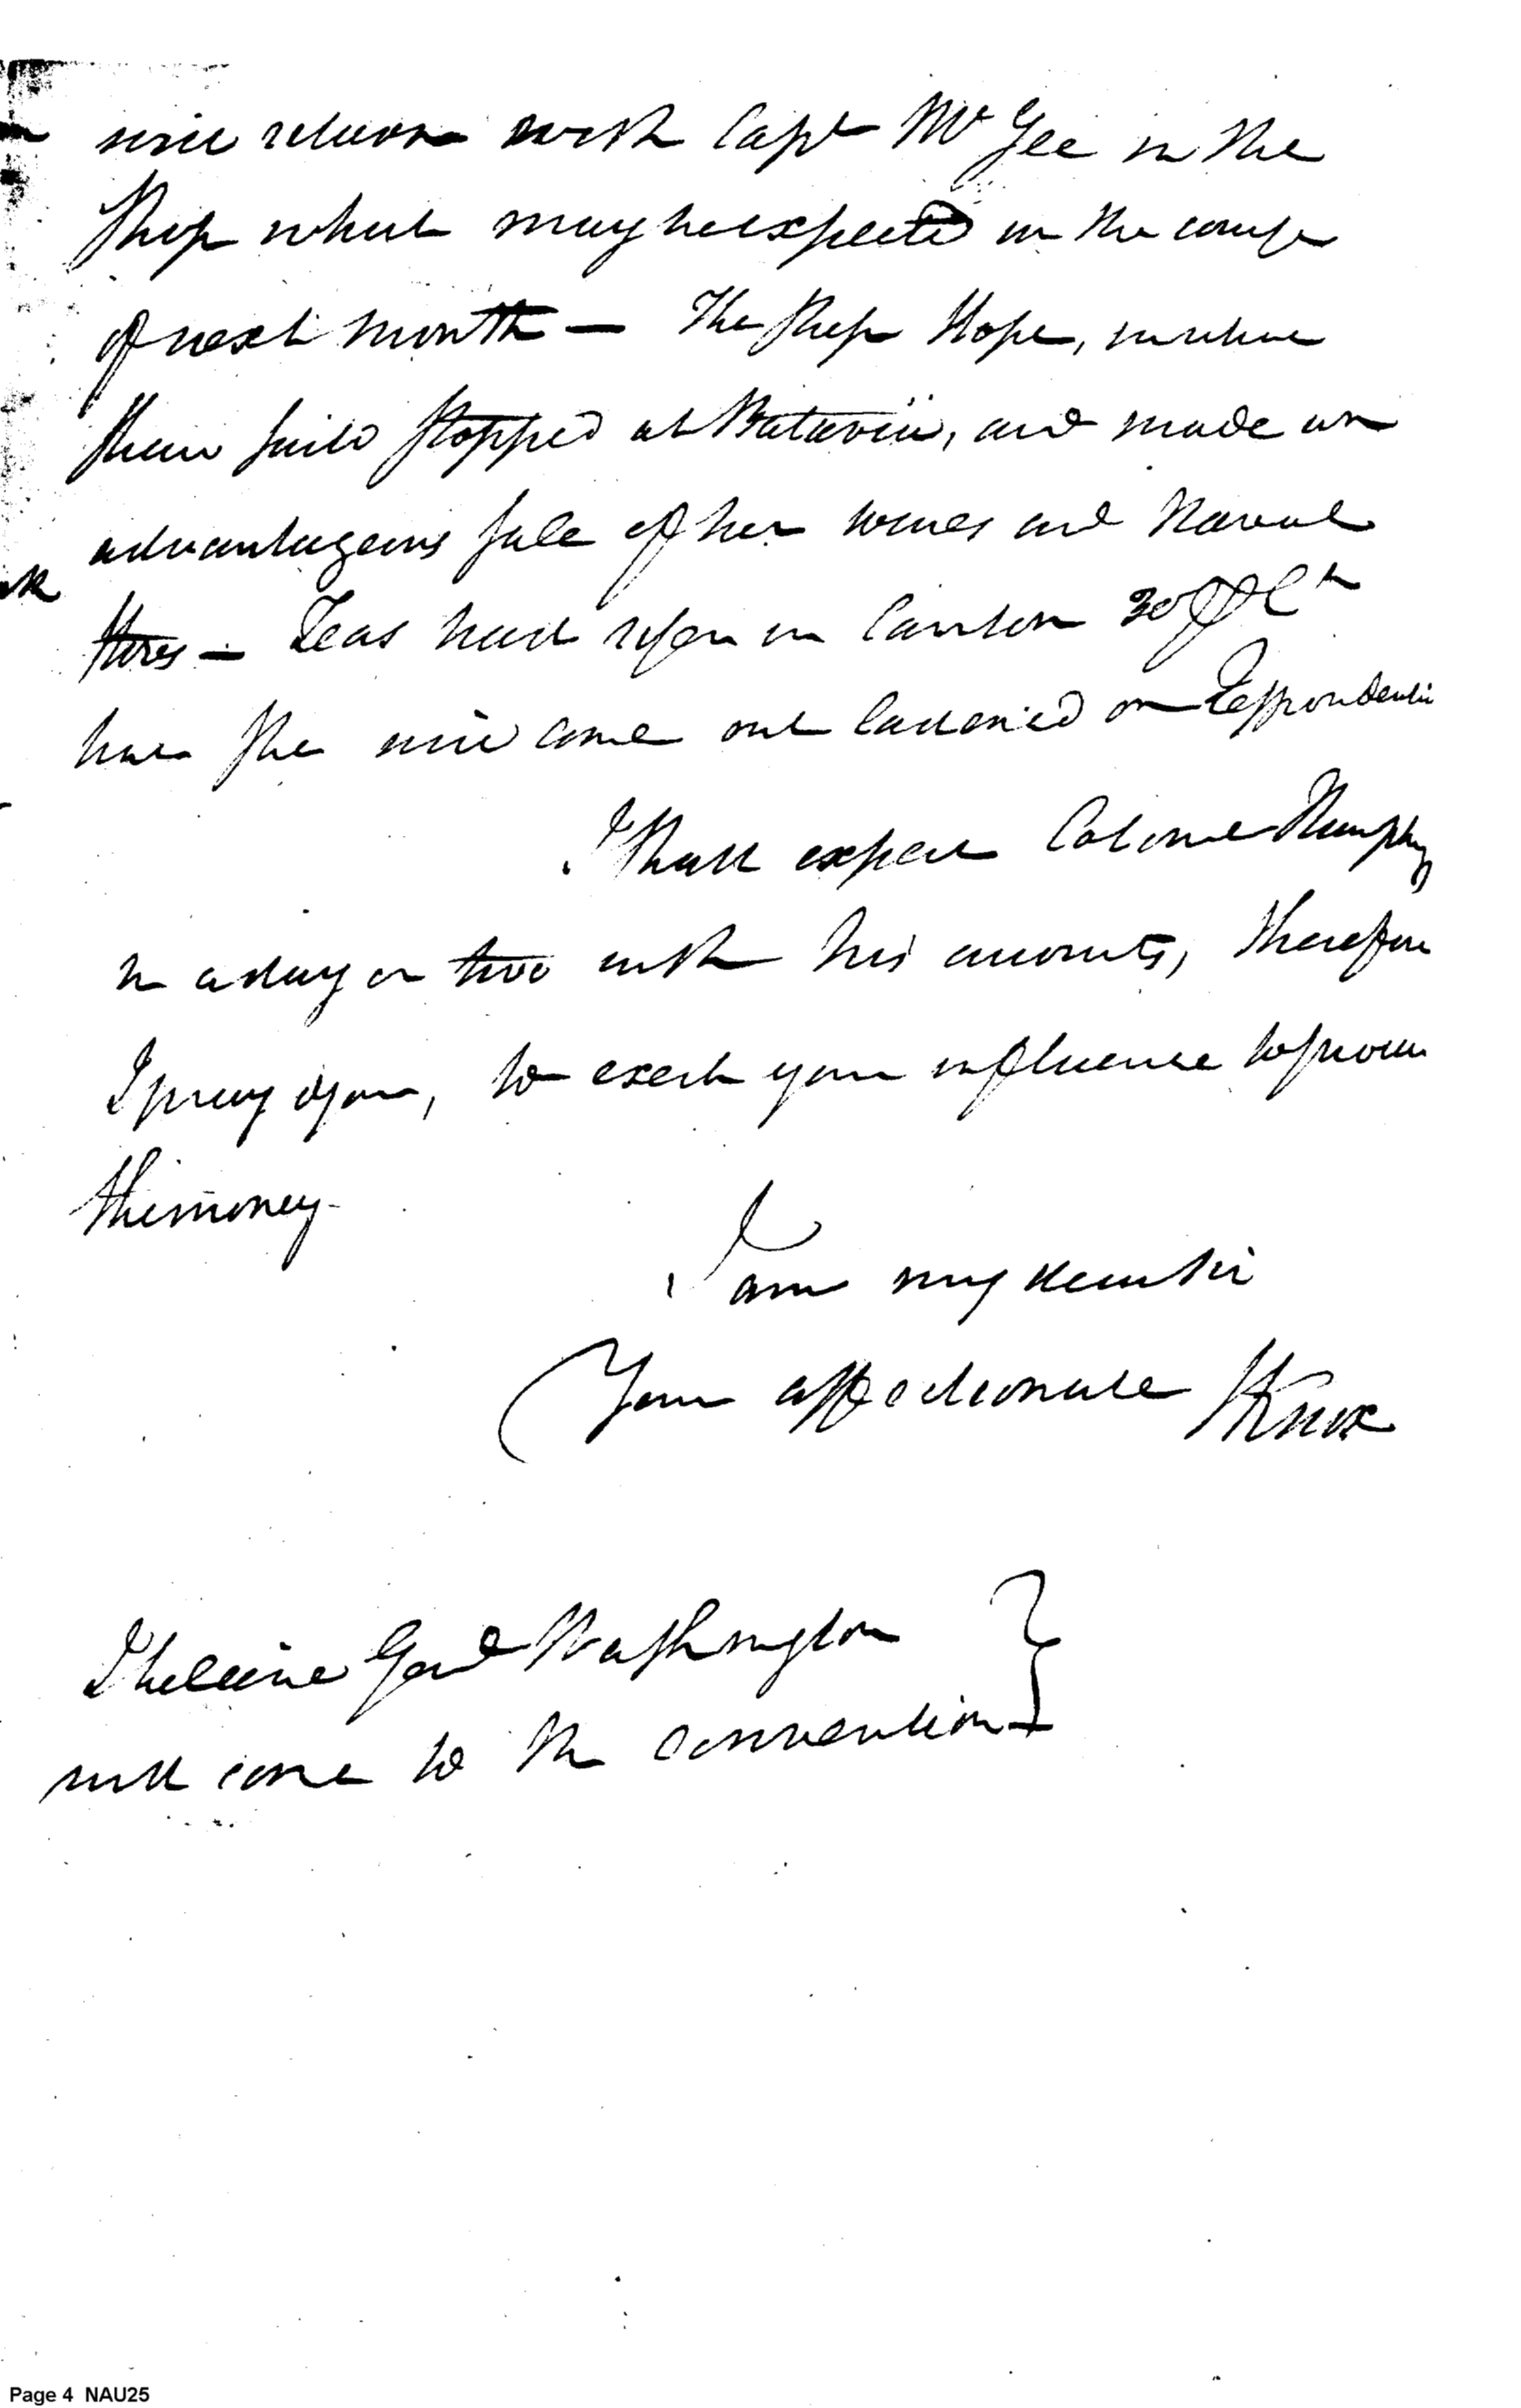 will return with Capt McGee in the
ship which may be expected in the course
of next month — The ship Hope, in which
Shaw saild stopped at Batavia, and made an
advantageous sale of her wines and Naval
Stores — Teas had risen in Canton 30 PCt
but she will come out on Respondentia
I shall expect Colonel Humphreys
in a day or two with his accounts, therefore
I pray you, to exert your influence to procure
the money —
I am my dear sir
Your affectionate HKnox
I believe Genl Washington
will come to the convention
Page 4 NAU25